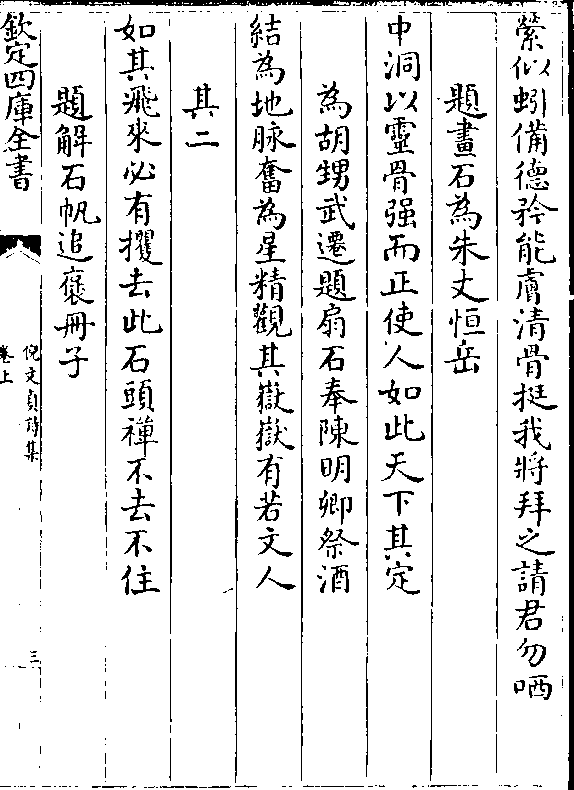 縈似蚓備德矜能膚清骨挺我將拜之請君勿哂
題畫石為朱丈恒岳
中洞以靈骨强而正使人如此天下其定
為胡甥武遷題扇石奉陳明卿祭酒
結為地脉奮為星精觀其嶽嶽有若文人
其二
如其飛來必有攫去此石頭禪不去不住
題解石帆追褒冊子
欽定四庫全書
倪文貞詩集
卷上
三